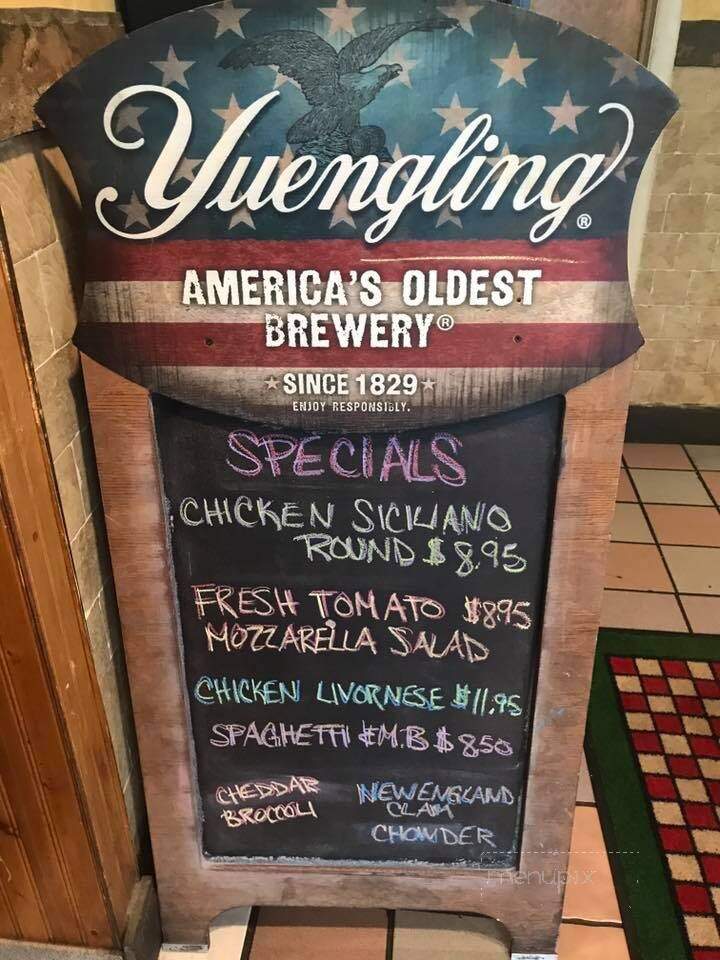 Yuengling®
AMERICA'S OLDEST
BREWERY®
SINCE 1829
ENJOY RESPONSIBLY.
SPECIALS
CHICKEN SICILIANO
ROUND $8.95
FRESH TOMATO $8.95
MOZZARELLA SALAD
CHICKEN LIVORNESE $11.95
SPAGHETTI & M.B $8.50
CHEDDAR
BROCCOLI
NEW ENGLAND
CLAM
CHOWDER
menupix